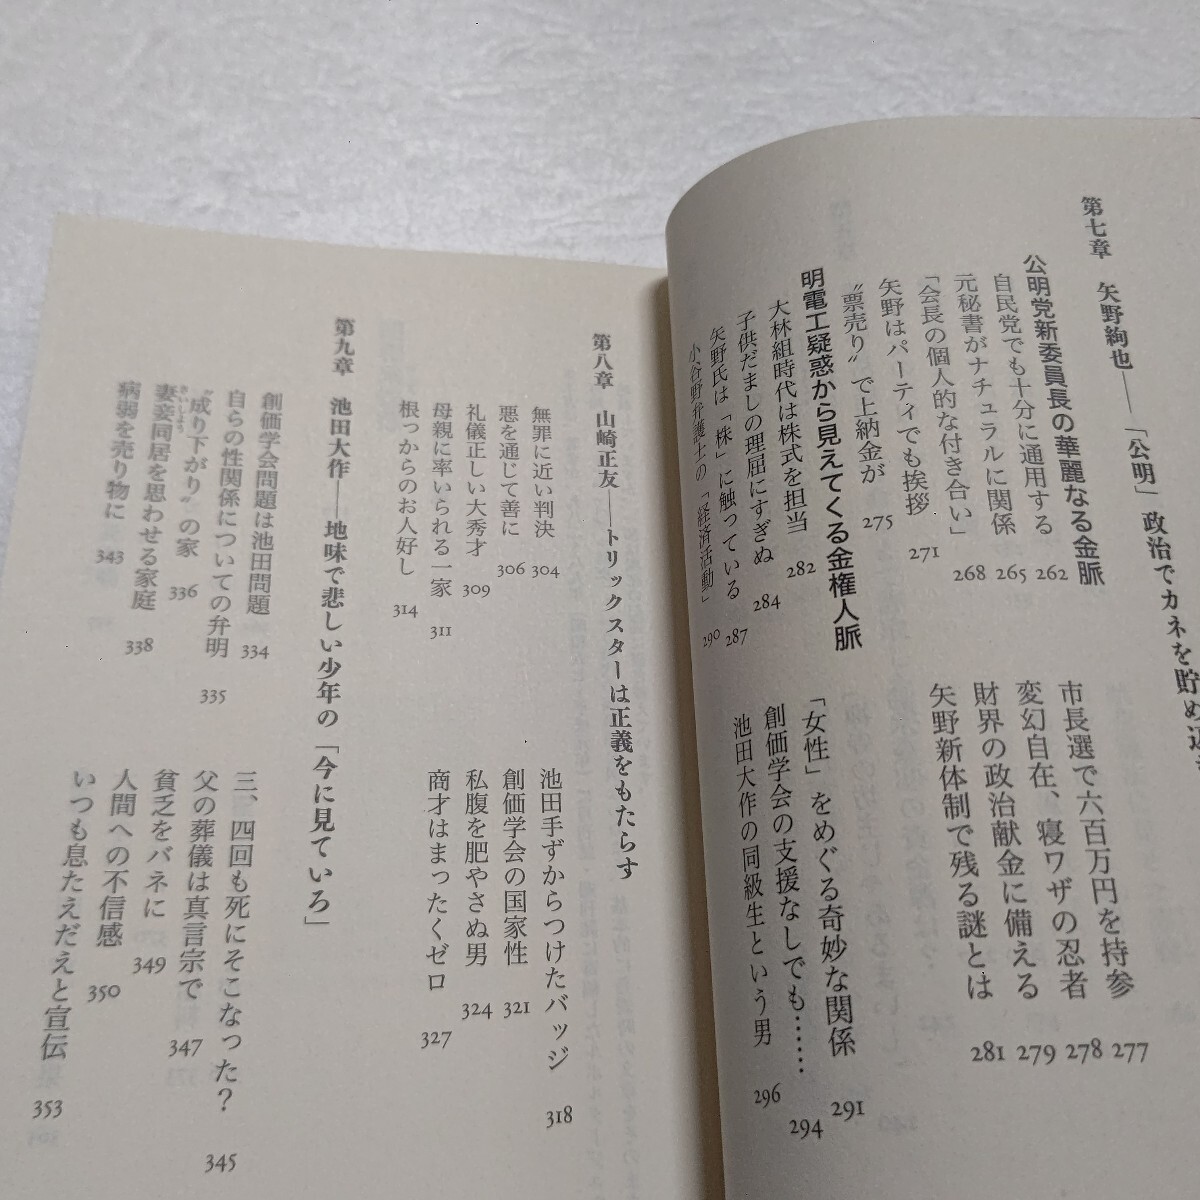 第七章 矢野絢也——「公明」政治でカネを貯め
公明党新委員長の華麗なる金脈
自民党でも十分に通用する 262
元秘書がナチュラルに関係 265
「会長の個人的な付き合い」 268
矢野はパーティでも挨拶 271
〝票売り〟で上納金が 275
市長選で六百万円を持参 277
変幻自在、寝ワザの忍者 278
財界の政治献金に備える 279
矢野新体制で残る謎とは 281
明電工疑惑から見えてくる金権人脈
大林組時代は株式を担当 282
子供だましの理屈にすぎぬ 284
矢野氏は「株」に触っている 287
小谷野弁護士の「経済活動」 290
「女性」をめぐる奇妙な関係 291
創価学会の支援なしでも…… 294
池田大作の同級生という男 296
第八章 山崎正友——トリックスターは正義をもたらす
無罪に近い判決 304
悪を通じて善に 306
礼儀正しい大秀才 309
母親に率いられる一家 311
根っからのお人好し 314
池田手ずからつけたバッジ 318
創価学会の国家性 321
私腹を肥やさぬ男 324
商才はまったくゼロ 327
第九章 池田大作——地味で悲しい少年の「今に見ていろ」
創価学会問題は池田問題 334
自らの性関係についての弁明 335
〝成り下がり〟の家 336
妻妾同居を思わせる家庭 338
さいしょう
病弱を売り物に 343
三、四回も死にそこなった? 345
父の葬儀は真言宗で 347
貧乏をバネに 349
人間への不信感 350
いつも息たえだえと宣伝 353